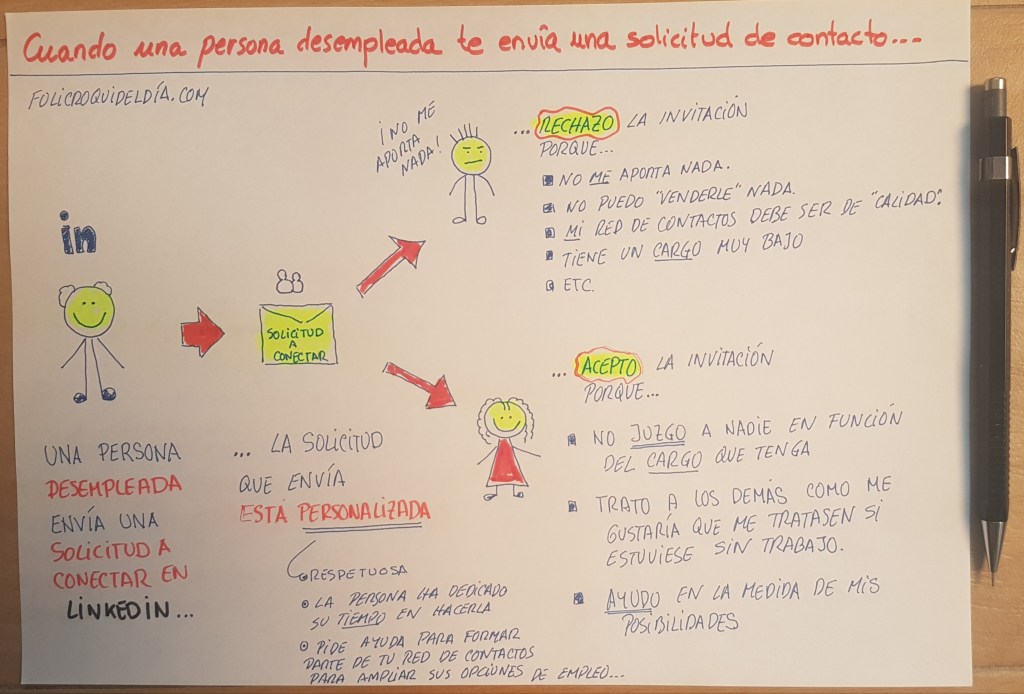 Cuando una persona desempleada te envía una solicitud de contacto...
FOLICROQUIDELDÍA.COM
in
UNA PERSONA
DESEMPLEADA
ENVÍA UNA
SOLICITUD A
CONECTAR EN
LINKEDIN...
SOLICITUD
A
CONECTAR
... LA SOLICITUD
QUE ENVÍA
ESTÁ PERSONALIZADA
RESPETUOSA
LA PERSONA HA DEDICADO
SU TIEMPO EN HACERLA
PIDE AYUDA PARA FORMAR
PARTE DE TU RED DE CONTACTOS
PARA AMPLIAR SUS OPCIONES DE EMPLEO...
¡NO ME
APORTA
NADA!
... RECHAZO LA INVITACIÓN
PORQUE...
NO ME APORTA NADA.
NO PUEDO "VENDERLE" NADA.
MI RED DE CONTACTOS DEBE SER DE "CALIDAD".
TIENE UN CARGO MUY BAJO
ETC.
... ACEPTO LA INVITACIÓN
PORQUE...
NO JUZGO A NADIE EN FUNCIÓN
DEL CARGO QUE TENGA
TRATO A LOS DEMÁS COMO ME
GUSTARÍA QUE ME TRATASEN SI
ESTUVIESE SIN TRABAJO.
AYUDO EN LA MEDIDA DE MIS
POSIBILIDADES